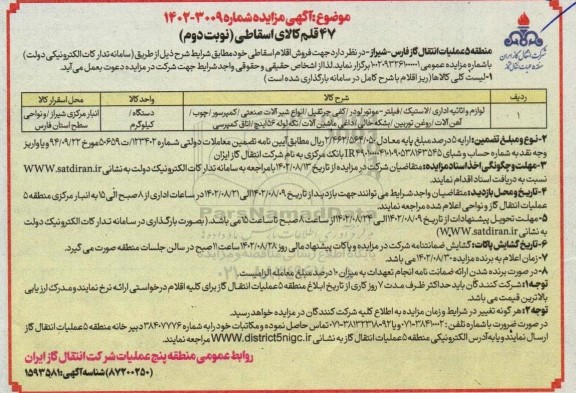 موضوع: آگهی مزایده شماره ۳۰۰۹-۱۴۰۲
۴۷ قلم کالای اسقاطی (نوبت دوم)
منطقه ۵ عملیات انتقال گاز فارس-شیراز- در نظر دارد جهت فروش اقلام اسقاطی خود مطابق شرایط شرح ذیل از طریق (سامانه تدارکات الکترونیکی دولت)
باشماره مزایده عمومی برگزار نماید. لذا از اشخاص حقیقی و حقوقی واجد شرایط جهت شرکت در مزایده دعوت بعمل می آید.
۱- لیست کلی کالاها (ریز اقلام با شرح کامل در سامانه بارگذاری شده است)
ردیف شرح کالا واحد کالا محل استقرار کالا
۱ لوازم و اثاثیه اداری / لاستیک / فیلتر - موتور لودر / کفی جرثقیل / انواع شیرآلات صنعتی / کمپرسور / چوب / دستگاه / انبار مرکزی شیراز / و نواحی
آهن آلات / روغن توربین / بشکه خالی / داغی ماشین آلات / تکه لوله ۵۶ اینچ / اتاق کمپرسی کیلوگرم سطح استان فارس
۲- نوع و مبلغ تضمین: ارایه ۵ درصد مبلغ پایه معادل ریال مطابق آیین نامه تضمین معاملات دولتی شماره ۱۲۳۴۰۲/ت۵۰۶۵۹ه مورخ ۹۴/۰۹/۲۲ و یا واریز
وجه نقد به شماره حساب و شبای بانک مرکزی به نام شرکت انتقال گاز ایران
۳- مهلت و چگونگی اخذ اسناد مزایده: متقاضیان شرکت در مزایده از تاریخ ۱۴۰۲/۰۸/۱۳ با مراجعه به سامانه تدارکات الکترونیک دولت به نشانی WWW.satdiran.ir
نسبت به دریافت اسناد اقدام نمایند.
۴- تاریخ و محل بازدید: متقاضیان واجد شرایط می توانند جهت بازدید از تاریخ الی ۱۴۰۲/۰۸/۲۱ در ساعات اداری از ۸ صبح الی ۱۵ به انبار مرکزی منطقه ۵
عملیات انتقال گاز و نواحی اعلام شده مراجعه نمایند.
۵- مهلت تحویل پیشنهادات از تاریخ الی ساعت ۸ صبح تا ساعت ۱۵ می باشد. (بصورت بارگذاری در سامانه تدارکات الکترونیک دولت
به نشانی WWW.satdiran.ir)
۶- تاریخ گشایش پاکات: گشایش ضمانتنامه شرکت در مزایده و پاکات پیشنهاد مالی روز ۱۴۰۲/۰۸/۲۸ ساعت ۱۱ صبح در سالن جلسات منطقه صورت می گیرد.
۷- زمان اعلام به برنده مزایده ۱۴۰۲/۰۸/۳۰ می باشد.
۸- در صورت برنده شدن ارائه ضمانت نامه انجام تعهدات به میزان ۱۰ درصد مبلغ معامله الزامیست.
توجه ۱: شرکت کنندگان باید حداکثر ظرف مدت ۷ روز کاری از تاریخ ابلاغ منطقه ۵ عملیات انتقال گاز برای کلیه اقلام درخواستی ارائه نرخ نمایند و مدرک ارزیابی
بالاترین قیمت می باشد.
توجه ۲: هر گونه تغییر در شرایط و زمان مزایده به اطلاع کلیه شرکت کنندگان در مزایده خواهد رسید.
در صورت ضرورت با شماره تلفن: و تماس حاصل نموده و مکاتبات خود را به شماره ۳۸۴۰۷۷۷۶ دبیرخانه منطقه ۵ عملیات انتقال گاز
ارسال نمایند و یا به آدرس الکترونیکی منطقه ۵ عملیات انتقال گاز به نشانی WWW.district5nigc.ir مراجعه نمایند.
روابط عمومی منطقه پنج عملیات شرکت انتقال گاز ایران
(۸۷۲۰۰۲۵۰) شناسه آگهی: ۱۵۹۳۵۸۱